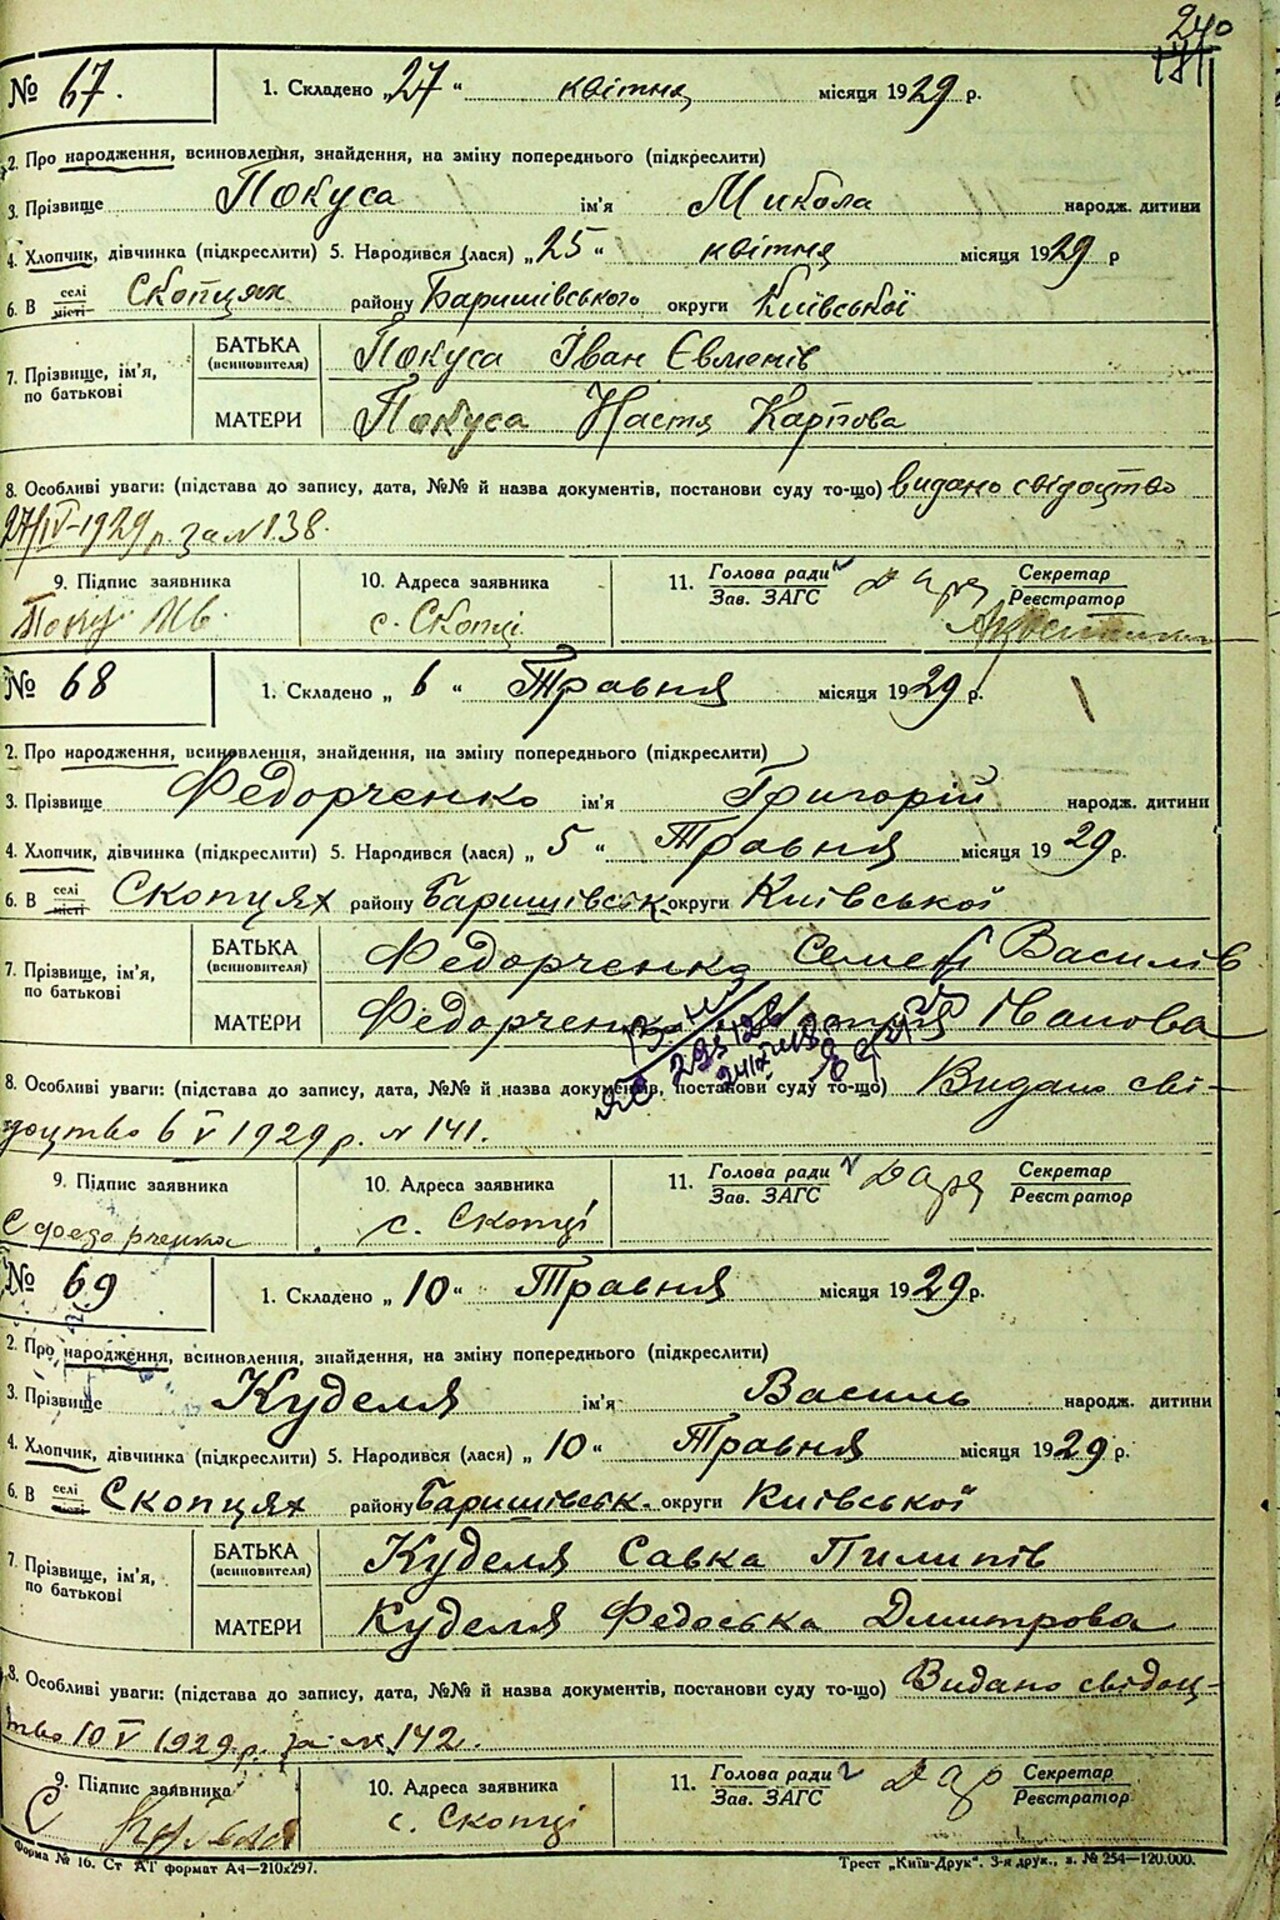 240
№ 67. 1. Складено „27“ квітня місяця 1929 р.
2. Про народження, всиновлення, знайдення, на зміну попереднього (підкреслити)
3. Прізвище Покуса ім'я Микола народж. дитини
4. Хлопчик, дівчинка (підкреслити) 5. Народився (лася) „25“ квітня місяця 1929 р
6. В селі/місті Скопцях району Баришівського округи Київської
7. Прізвище, ім'я, по батькові БАТЬКА (всиновителя) Покуса Іван Євменів
МАТЕРИ Покуса Настя Карпова
8. Особливі уваги: (підстава до запису, дата, №№ й назва документів, постанови суду то-що) видано свідоцтво
27/IV-1929 р. за № 138.
9. Підпис заявника 10. Адреса заявника 11. Голова ради Зав. ЗАГС Секретар Реєстратор
с. Скопці
№ 68 1. Складено „6“ Травня місяця 1929 р.
2. Про народження, всиновлення, знайдення, на зміну попереднього (підкреслити)
3. Прізвище Федорченко ім'я Григорій народж. дитини
4. Хлопчик, дівчинка (підкреслити) 5. Народився (лася) „5“ Травня місяця 1929 р.
6. В селі/місті Скопцях району Баришівськ. округи Київської
7. Прізвище, ім'я, по батькові БАТЬКА (всиновителя) Федорченко Семен Василів
МАТЕРИ Федорченко Іванова
8. Особливі уваги: (підстава до запису, дата, №№ й назва документів, постанови суду то-що) Видано сві-
доцтво 6 V 1929 р. № 141.
9. Підпис заявника 10. Адреса заявника 11. Голова ради Зав. ЗАГС Секретар Реєстратор
С Федорченко с. Скопці
№ 69 1. Складено „10“ Травня місяця 1929 р.
2. Про народження, всиновлення, знайдення, на зміну попереднього (підкреслити)
3. Прізвище Куделя ім'я Василь народж. дитини
4. Хлопчик, дівчинка (підкреслити) 5. Народився (лася) „10“ Травня місяця 1929 р.
6. В селі/місті Скопцях району Баришівськ. округи Київської
7. Прізвище, ім'я, по батькові БАТЬКА (всиновителя) Куделя Савка Пилипів
МАТЕРИ Куделя Федоська Дмитрова
8. Особливі уваги: (підстава до запису, дата, №№ й назва документів, постанови суду то-що) Видано свідоц-
тво 10 V 1929 р. за № 142.
9. Підпис заявника 10. Адреса заявника 11. Голова ради Зав. ЗАГС Секретар Реєстратор
с. Скопці
Форма № 16. Ст АГ формат А4—210х297. Трест „Київ-Друк“. 3-я друк., з. № 254—120.000.